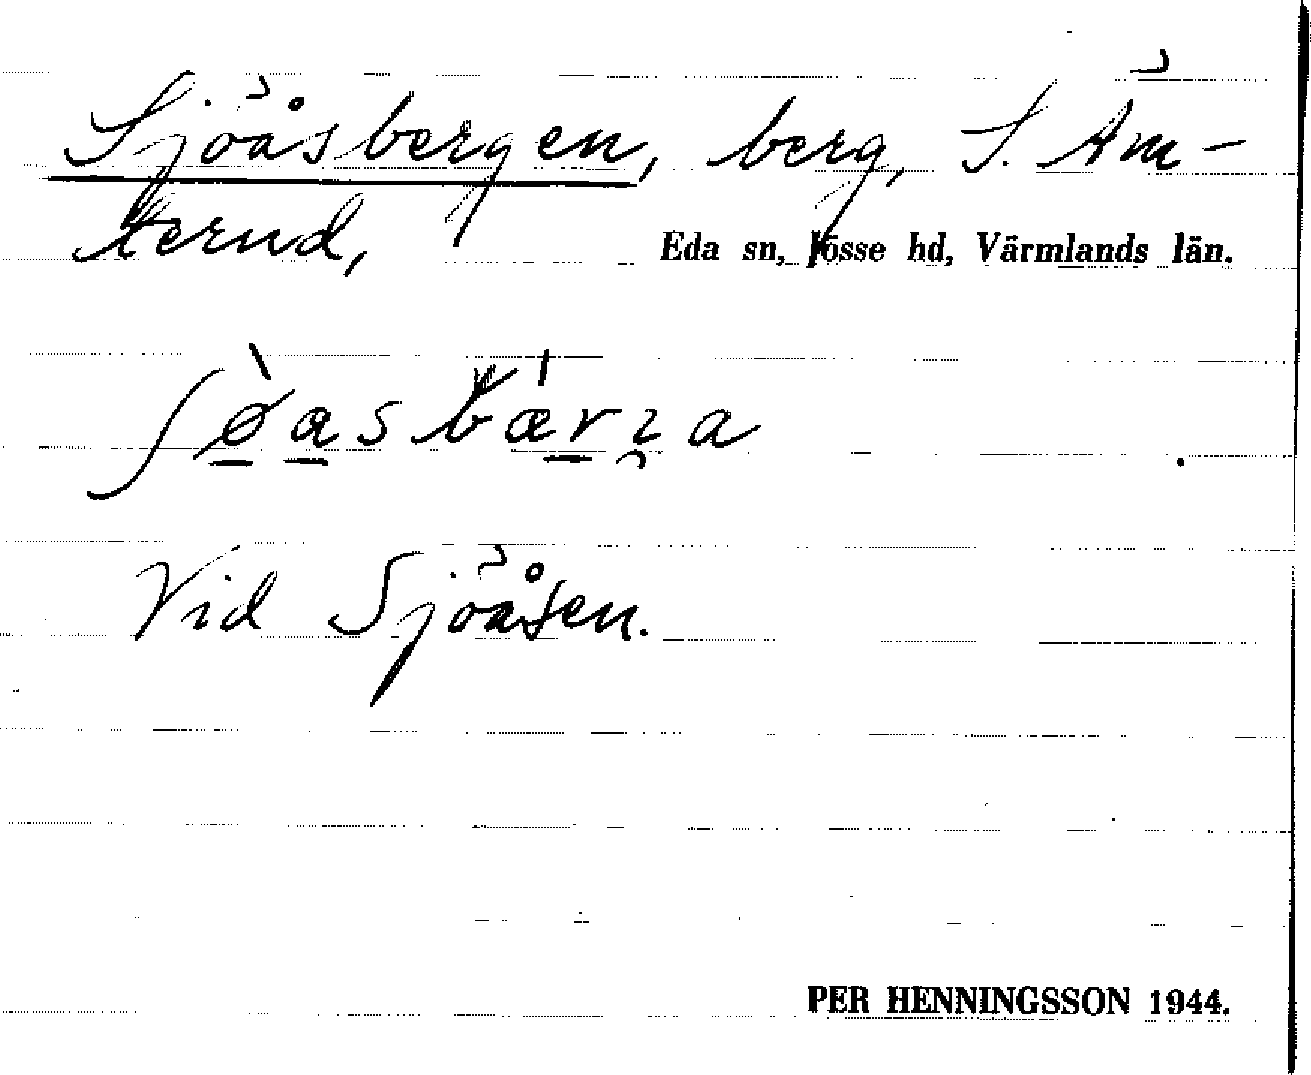 Sjöåsbergen, berg, S. Äm-
ternd,
Eda sn, Jösse hd, Värmlands län.
Vid Sjöåsen.
PER HENNINGSSON 1944.